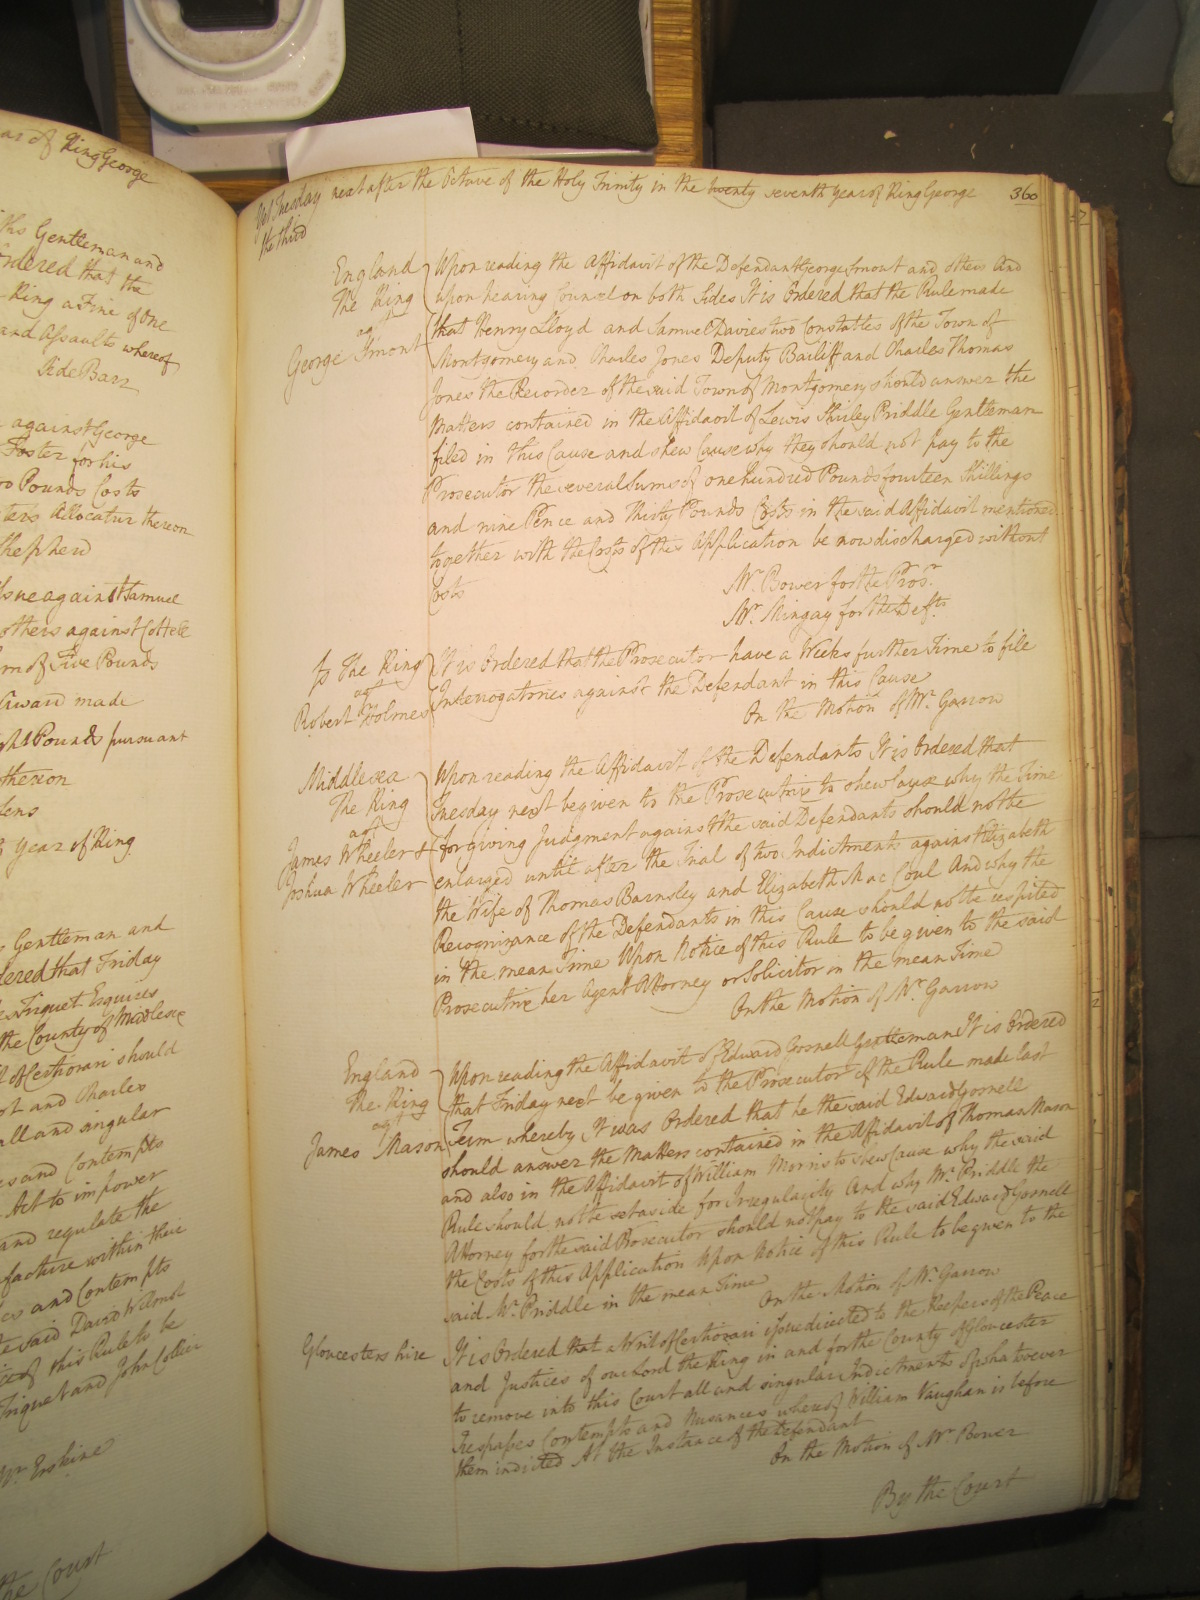 ar of King George
this Gentleman and
Ordered that the
King a Fine of One
and Assaults whereof
Side Barr
against George
Foster for his
Pounds Costs
ters Allocatur thereon
Shepherd
against Samuel
others against Cottell
m of Five Pounds
Award made
ght Pounds pursuant
thereon
Year of King
Gentleman and
dered that Friday
Triquet Esquires
the County of Middlesex
of Certiorari should
and Charles
all and singular
es and Contempts
Act to impower
and regulate the
facture within their
es and Contempts
said David Wilmot
of this Rule to be
Triquet and John Collier
Mr. Erskine
the Court
360
Yet Tuesday next after the Octave of the Holy Trinity in the twenty seventh Year of King George
the third
England
The King
agt
George Smout
Upon reading the Affidavit of the Defendant George Smout and others And
upon hearing Councel on both Sides It is Ordered that the Rule made
that Henry Lloyd and Samuel Davies two Constables of the Town of
Montgomery and Charles Jones Deputy Bailiff and Charles Thomas
Jones the Recorder of the said Town of Montgomery should answer the
Matters contained in the Affidavit of Lewis Shirley Priddle Gentleman
filed in this Cause and shew Cause why they should not pay to the
Prosecutor the several Sums of one hundred Pounds fourteen Shillings
and nine Pence and Thirty Pounds Costs in the said Affidavit mentioned
together with the Costs of this Application be now discharged without
Costs
Mr. Bower for the Prosr.
Mr. Mingay for the Defts.
The King
agt
Robert Holmes
It is Ordered that the Prosecutor have a Weeks further Time to file
Interrogatories against the Defendant in this Cause
On the Motion of Mr. Garrow
Middlesex
The King
agt
James Wheeler &
Joshua Wheeler
Upon reading the Affidavit of the Defendants It is Ordered that
Tuesday next be given to the Prosecutrix to shew Cause why the Time
for giving Judgment against the said Defendants should not be
enlarged until after the Trial of two Indictments against Elizabeth
the Wife of Thomas Barnsley and Elizabeth Mac Coul And why the
Recognizance of the Defendants in this Cause should not be respited
in the mean Time Upon Notice of this Rule to be given to the said
Prosecutrix her Agent Attorney or Solicitor in the mean Time
On the Motion of Mr. Garrow
England
The King
agt
James Mason
Upon reading the Affidavit of Edward Gosnell Gentleman It is Ordered
that Friday next be given to the Prosecutor of the Rule made last
Term whereby It was Ordered that he the said Edward Gosnell
should answer the Matters contained in the Affidavit of Thomas Mason
and also in the Affidavit of William Morris to shew Cause why the said
Rule should not be set aside for Irregularity And why Mr. Priddle the
Attorney for the said Prosecutor should not pay to the said Edward Gosnell
the Costs of this Application Upon Notice of this Rule to be given to the
said Mr. Priddle in the mean Time
On the Motion of Mr. Garrow
Gloucestershire
It is Ordered that a Writ of Certiorari issue directed to the Keepers of the Peace
and Justices of our Lord the King in and for the County of Gloucester
to remove into this Court all and singular Indictments of whatsoever
Trespasses Contempts and Nusances whereof William Vaughan is before
them indicted At the Instance of the Defendant
On the Motion of Mr. Bower
By the Court